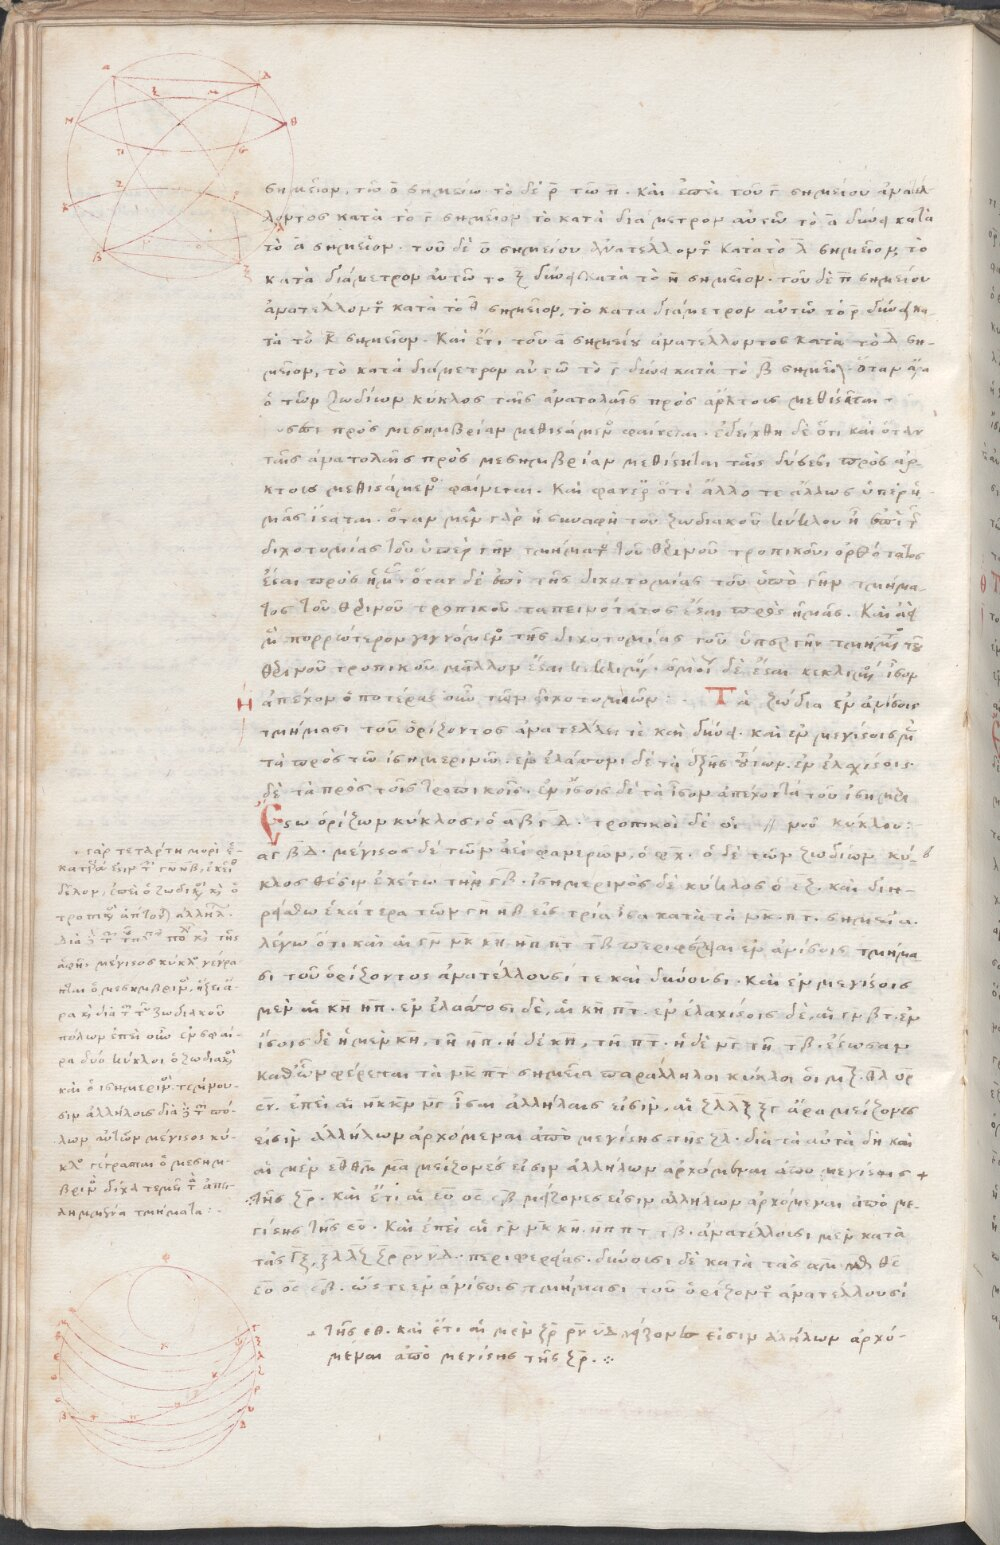 σημεῖον, τῶ ο̄ σημείω τὸ δὲ ρ̄ τῶ π. καὶ ἐπεὶ τοῦ γ̄ σημείου ἀνατέλ
λοντος κατὰ τὸ γ̄ σημεῖον τὸ κατὰ διάμετρον αὐτῶ τὸ ᾱ δύνει κατὰ
τὸ ᾱ σημεῖον. τοῦ δὲ ο̄ σημείου ἀνατέλλοντος κατὰ τὸ λ̄ σημεῖον, τὸ
κατὰ διάμετρον αὐτῶ το ξ̄ δύνει κατὰ τὸ η̄ σημεῖον. τοῦ δὲ π̄ σημείου
ἀνατέλλοντος κατὰ τὸ θ̄ σημεῖον, τὸ κατα διάμετρον αὐτῶ τὸ ρ̄ δύνει κα
τὰ τὸ κ̄ σημεῖον. Καὶ ἔτι τοῦ ᾱ σημείου ἀνατέλλοντος κατὰ τὸ δ̄ ση-
μεῖον, τὸ κατὰ διάμετρον αὐτῶ τὸ γ δύνει κατὰ τὸ β̄ σημεῖον. ὅταν ἄρα
ὁ τῶν ζωδίων κύκλος ταῖς ἀνατολαῖς πρὸς ἄρκτοις μεθίσταται.
πρὸς μεσημβρίαν μεθιστάμενος φαίνεται. ἐδείχθη δὲ ὅτι καὶ ὅταν
ταῖς ἀνατολαῖς πρὸς μεσημβρίαν μεθίστηται ταῖς δύσεσι πρὸς ἄρ-
κτοις μεθιστάμενος φαίνεται. Καὶ φανερὸν ὅτι ἄλλο τε ἄλλως ὑπὲρ ἡ-
μᾶς ἵσταται. ὅταν μὲν γὰρ ἡ συναφὴ τοῦ ζωδιακοῦ κύκλου ἦ ἐπὶ τῆς
διχοτομίας τοῦ ὑπὲρ γῆν τμήματος τοῦ θερινοῦ τροπικοῦ, ὀρθότατος
ἔσται πρὸς ἡμᾶς. ὅταν δὲ ἐπὶ τῆς διχοτομίας τοῦ ὑπὸ γῆν τμήμα-
τος τοῦ θερινοῦ τροπικοῦ ταπεινότατος ἔσται πρὸς ἡμᾶς. Καὶ ἀεὶ
πορρώτερον γιγνόμενος τῆς διχοτομίας τοῦ ὑπὲρ γῆν τμήματος τοῦ
θερινοῦ τροπικοῦ μᾶλλον ἔσται κεκλιμένος. ὁμοίως δὲ ἔσται κεκλιμένος ἴσον
Η ἀπέχων ὁποτέρας οὖν τῶν διχοτομιῶν : Τὰ ζώδια ἐν ἀνίσοις
τμήμασι τοῦ ὁρίζοντος ἀνατέλλει τε καὶ δύνει. καὶ ἐν μεγίστοις μὲν
τὰ πρὸς τῶ ἰσημερινῶ. ἐν ἐλάττοσι δὲ τὰ ἑξῆς τούτων. ἐν ἐλαχίστοις
δὲ τὰ πρὸς τοῖς τροπικοῖς. ἐν ἴσοις δὲ τὰ ἴσον ἀπέχοντα τοῦ ἰσημερι
Ἔστω ὁρίζων κύκλος ὁ αβγδ. τροπικοὶ δὲ οἱ // νοῦ κύκλου:
αγ β̄δ. μέγιστος δὲ τῶν ἀεὶ φανερῶν, ὁ φχ. ὁ δὲ τῶν ζωδίων κύ-
κλος θέσιν ἐχέτω τὴν γ̄β. ἰσημερινὸς δὲ κύκλος ὁ εζ. καὶ διη-
ρήσθω ἑκάτερα τῶν γη ηβ εἰς τρία ἴσα κατὰ τὰ μκ. πτ. σημεῖα.
λέγω ὅτι καὶ αἱ γμ μκ κη. ηπ πτ τβ περιφέρειαι ἐν ἀνίσοις τμήμα
σι τοῦ ὁρίζοντος ἀνατέλλουσί τε καὶ δύνουσι. Καὶ ἐν μεγίστοις
μὲν αἱ κη ηπ. ἐν ἐλάττοσι δὲ, αἱ κη πτ. ἐν ἐλαχίστοις δὲ, αἱ γμ βτ. ἐν
ἴσοις δὲ ἡ μὲν κη, τῆ ηπ. ἡ δὲ κη, τῆ πτ. ἡ δὲ μγ τῆ τβ. ἔστωσαν
καθ' ὧν φέρεται τὰ μκ πτ σημεῖα παράλληλοι κύκλοι οἱ
ἐπεὶ αἱ ηκ κμ μγ ἴσαι ἀλλήλαις εἰσὶν, αἱ ζλ λξ ξγ ἄρα μείζονες
εἰσὶν ἀλλήλων ἀρχόμεναι ἀπὸ μεγίστης τῆς ζλ. διὰ τὰ αὐτὰ δὴ καὶ
αἱ μὲν εθ θμ μα μείζονές εἰσιν ἀλλήλων ἀρχόμεναι ἀπὸ μεγίστης +
τῆς ζρ. καὶ ἔτι αἱ εο ος ςβ μείζονες εἰσιν ἀλλήλων ἀρχόμεναι ἀπὸ με-
γίστης τῆς εο. Καὶ ἐπεὶ αἱ γμ μκ κη. ηπ πτ τβ. ἀνατέλλουσι μὲν κατὰ
τὰς γξ, ξλ λζ ζρ ρυ υδ. περιφερείας. δύνουσι δὲ κατὰ τὰς αμ μθ θε
εο ος ςβ. ὥστε ἐν ἀνίσοις τμήμασι τοῦ ὁρίζοντος ἀνατέλλουσί
+ τῆς εθ. καὶ ἔτι αἱ μὲν ζρ ρυ υδ μείζονες εἰσὶν ἀλλήλων ἀρχό-
μεναι ἀπὸ μεγίστης τῆς ζρ.
δῆλον, ἐπεὶ ὁ ζωδιακὸς καὶ ὁ
τροπικὸς ἅπτονται ἀλλήλων.
ἁφῆς μέγιστος κύκλος γέγρα
πται ὁ μεσημβρινὸς, ἥξει ἄ-
ρα καὶ διὰ τῶν τοῦ ζωδιακοῦ
πόλων ἐπεὶ οὖν ἐν σφαί-
ρα δύο κύκλοι ὁ ζωδιακὸς
καὶ ὁ ἰσημερινὸς τέμνου-
σιν ἀλλήλους διὰ δὲ τῶν πό-
λων αὐτῶν μέγιστος κύ-
κλος γέγραπται ὁ μεσημ-
βρινὸς δίχα τεμεῖ τὰ ἀπει-
λημμένα τμήματα :